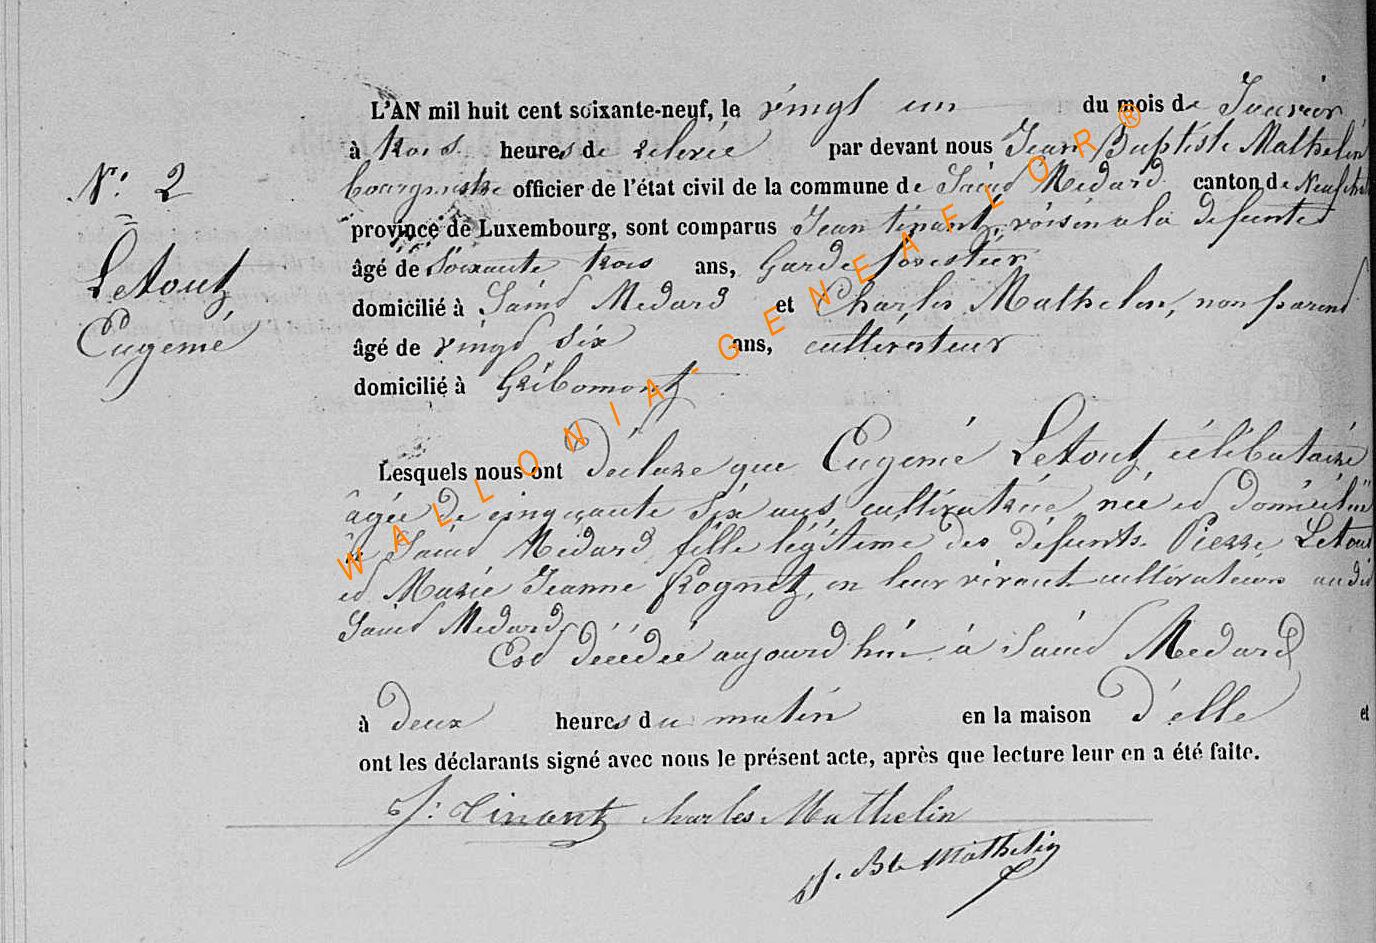 L'AN mil huit cent soixante-neuf, le vingt un du mois de Janvier
à trois heures de relevée par devant nous Jean Baptiste Mathelin
N° 2
bourgmestre officier de l'état civil de la commune de Saint Médard canton de Neufch
province de Luxembourg, sont comparus Jean tinant, voisin a la défunte
Letouz
Eugenie
âgé de Soixante trois ans, Garde forestier
domicilié à Saint Médard et Charles Mathelin, non parent
âgé de vingt six ans, cultivateur
domicilié à Gribomont
Lesquels nous ont déclaré que Eugénie Letouz, célibataire
âgée de cinquante six ans cultivatrice née et domiciliée
à Saint Médard, fille légitime des défunts Pierre Letouz
et Marie Jeanne Rognez, en leur vivant cultivateurs audit
Saint Médard
Est décédée aujourd'hui à Saint Médard
à deux heures du matin en la maison d'elle et
ont les déclarants signé avec nous le présent acte, après que lecture leur en a été faite.
J. Tinant Charles Mathelin
J. Bte Mathelin
WALLONIA-GENEAFLOR®